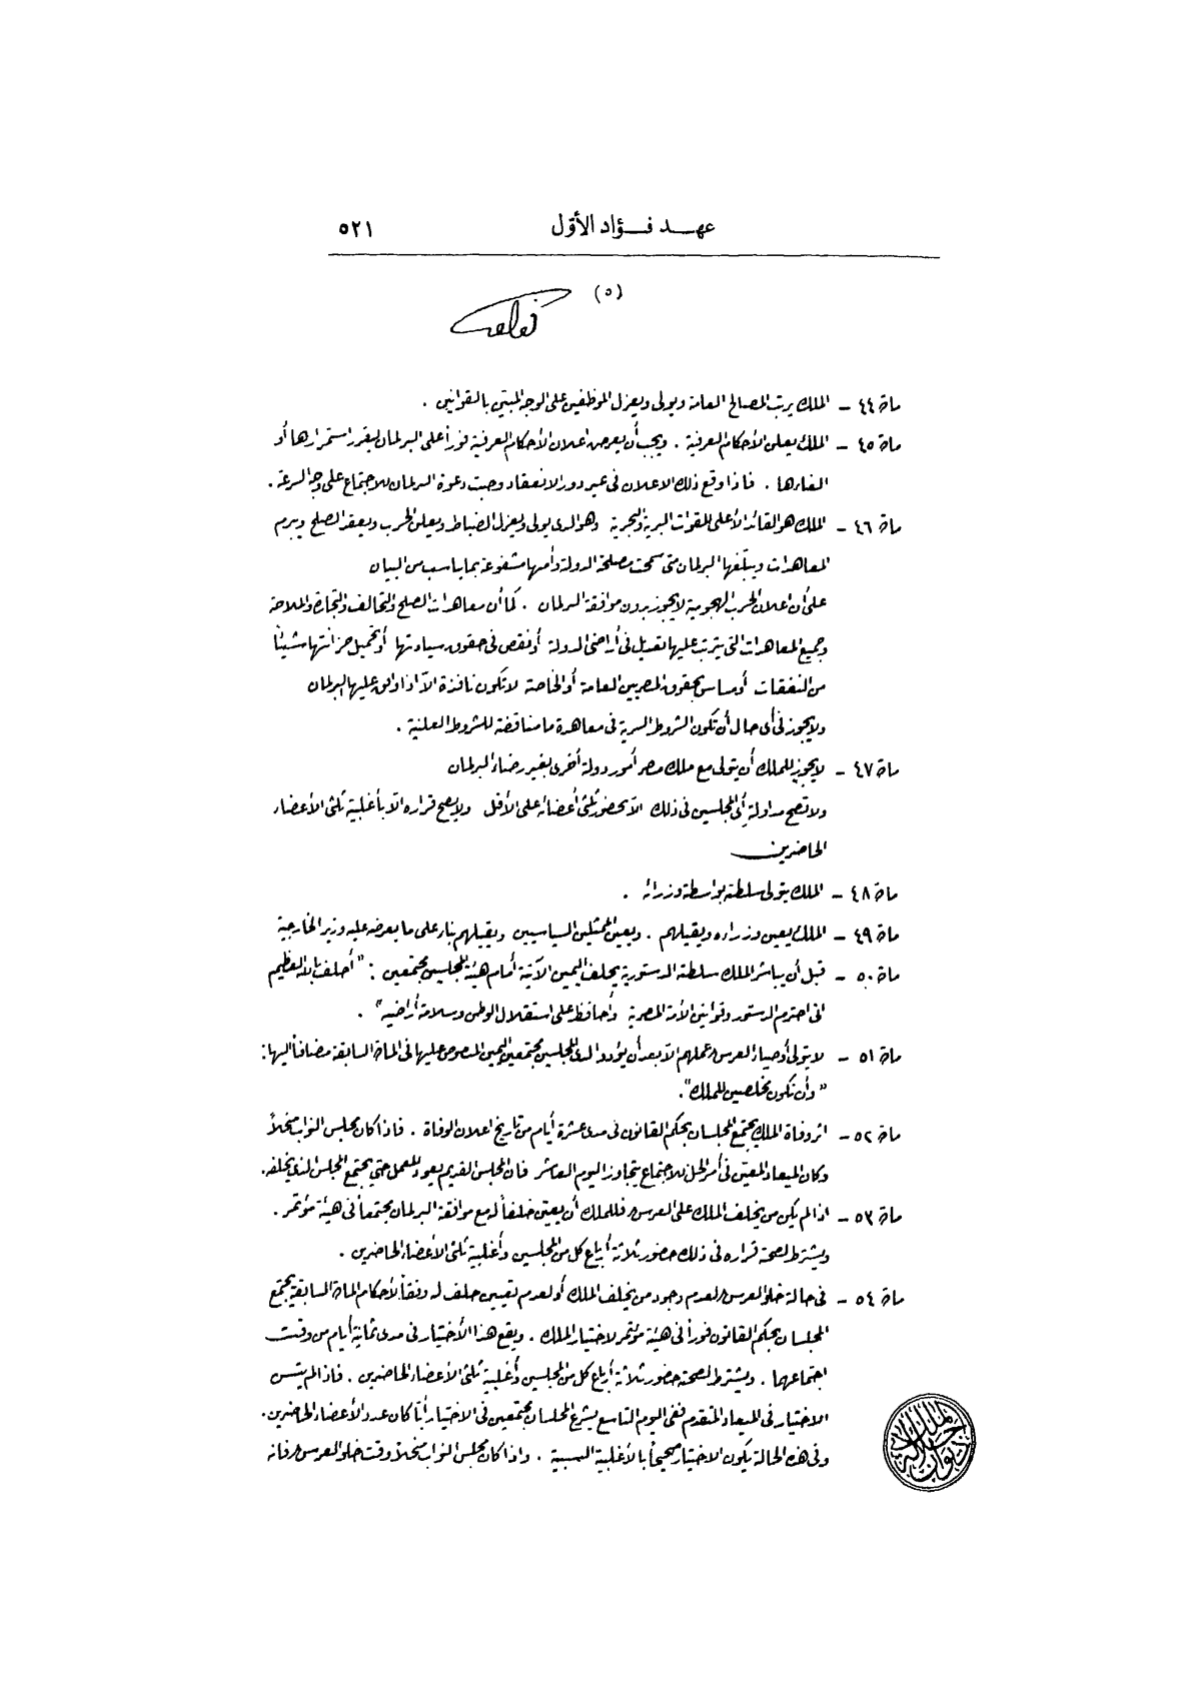 عهد فؤاد الأول ٥٢١
(٥)
مادة ٤٤ – الملك يرتب المصالح العامة ويولى ويعزل الموظفين على الوجه المبين بالقوانين .
مادة ٤٥ – الملك يعلن الأحكام العرفية . ويجب أن يعرض اعلان الأحكام العرفية فوراً على البرلمان ليقرر استمرارها أو
الغاءها . فاذا وقع ذلك الاعلان فى غير دور الانعقاد وجبت دعوة البرلمان للاجتماع على وجه السرعة .
مادة ٤٦ – الملك هو القائد الأعلى للقوات البرية والبحرية وهو الذى يولى ويعزل الضباط ويعلن الحرب ويعقد الصلح ويبرم
المعاهدات ويبلّغها البرلمان متى سمحت مصلحة الدولة وأمنها مشفوعة بما يناسب من البيان
على أن اعلان الحرب الهجومية لا يجوز بدون موافقة البرلمان . كما أن معاهدات الصلح والتحالف والتجارة والملاحة
وجميع المعاهدات التى يترتب عليها تعديل فى أراضى الدولة أو نقص فى حقوق سيادتها أو تحميل خزانتها شيئاً
من النفقات أو مساس بحقوق المصريين العامة أو الخاصة لا تكون نافذة الّا اذا وافق عليها البرلمان
ولا يجوز فى أى حال أن تكون الشروط السرية فى معاهدة ما مناقضة للشروط العلنية .
مادة ٤٧ – لا يجوز للملك أن يتولى مع ملك مصر أمور دولة أخرى بغير رضاء البرلمان
ولا تصح مداولة أى المجلسين فى ذلك الّا بحضور ثلثى أعضائه على الأقل ولا يصح قراره الّا بأغلبية ثلثى الأعضاء
الحاضرين
مادة ٤٨ – الملك يتولى سلطته بواسطة وزرائه .
مادة ٤٩ – الملك يعين وزراءه ويقيلهم . ويعين الممثلين السياسيين ويقيلهم بناء على ما يعرضه عليه وزير الخارجية
مادة ٥٠ – قبل أن يباشر الملك سلطته الدستورية يحلف اليمين الآتية أمام هيئة المجلسين مجتمعين : "أحلف بالله العظيم
انى احترم الدستور وقوانين الأمة المصرية وأحافظ على استقلال الوطن وسلامة أراضيه" .
مادة ٥١ – لا يتولى أوصياء العرش عملهم الّا بعد أن يؤدوا لدى المجلسين مجتمعين اليمين المنصوص عليها فى المادة السابقة مضافاً اليها :
"وأن نكون مخلصين للملك".
مادة ٥٢ – اثر وفاة الملك يجتمع المجلسان بحكم القانون فى مدى عشرة أيام من تاريخ اعلان الوفاة . فاذا كان مجلس النواب منحلاً
وكان الميعاد المعين فى أمر الحل للاجتماع يتجاوز اليوم العاشر فان المجلس القديم يعود للعمل حتى يجتمع المجلس الذى يخلفه .
مادة ٥٣ – اذا لم يكن من يخلف الملك على العرش فللملك أن يعين خلفاً له مع موافقة البرلمان مجتمعاً فى هيئة مؤتمر .
ويشترط لصحة قراره فى ذلك حضور ثلاثة أرباع كل من المجلسين وأغلبية ثلثى الأعضاء الحاضرين .
مادة ٥٤ – فى حالة خلو العرش لعدم وجود من يخلف الملك أو لعدم تعيين خلف له وفقاً لأحكام المادة السابقة يجتمع
المجلسان بحكم القانون فوراً فى هيئة مؤتمر لاختيار الملك . ويقع هذا الأختيار فى مدى ثمانية أيام من وقت
اجتماعهما . ويشترط لصحته حضور ثلاثة أرباع كل من المجلسين وأغلبية ثلثى الأعضاء الحاضرين . فاذا لم يتسن
الاختيار فى الميعاد المتقدم ففى اليوم التاسع يشرع المجلسان مجتمعين فى الاختيار أيّا كان عدد الأعضاء الحاضرين .
وفى هذه الحالة يكون الاختيار صحيحاً بالأغلبية النسبية . واذا كان مجلس النواب منحلاً وقت خلو العرش فانه